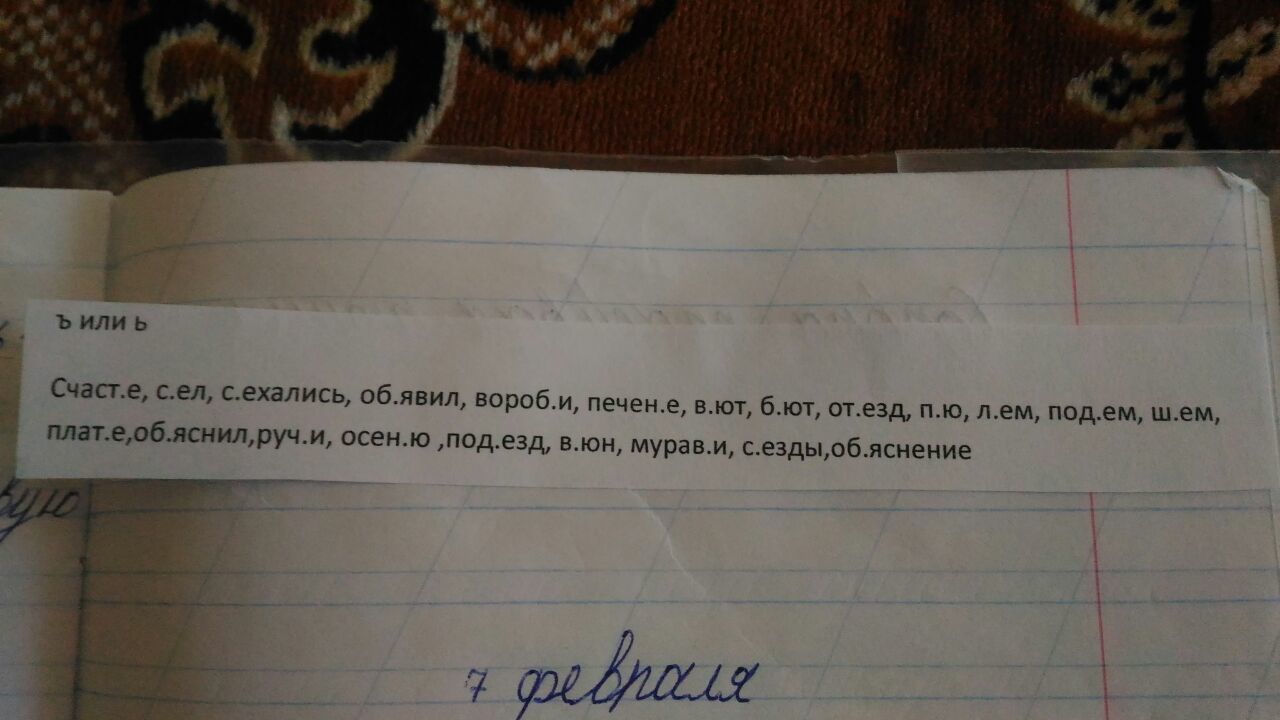 ъ или ь
Счаст.е, с.ел, с.ехались, об.явил, вороб.и, печен.е, в.ют, б.ют, от.езд, п.ю, л.ем, под.ем, ш.ем,
плат.е,об.яснил,руч.и, осен.ю ,под.езд, в.юн, мурав.и, с.езды,об.яснение
вую
7 февраля